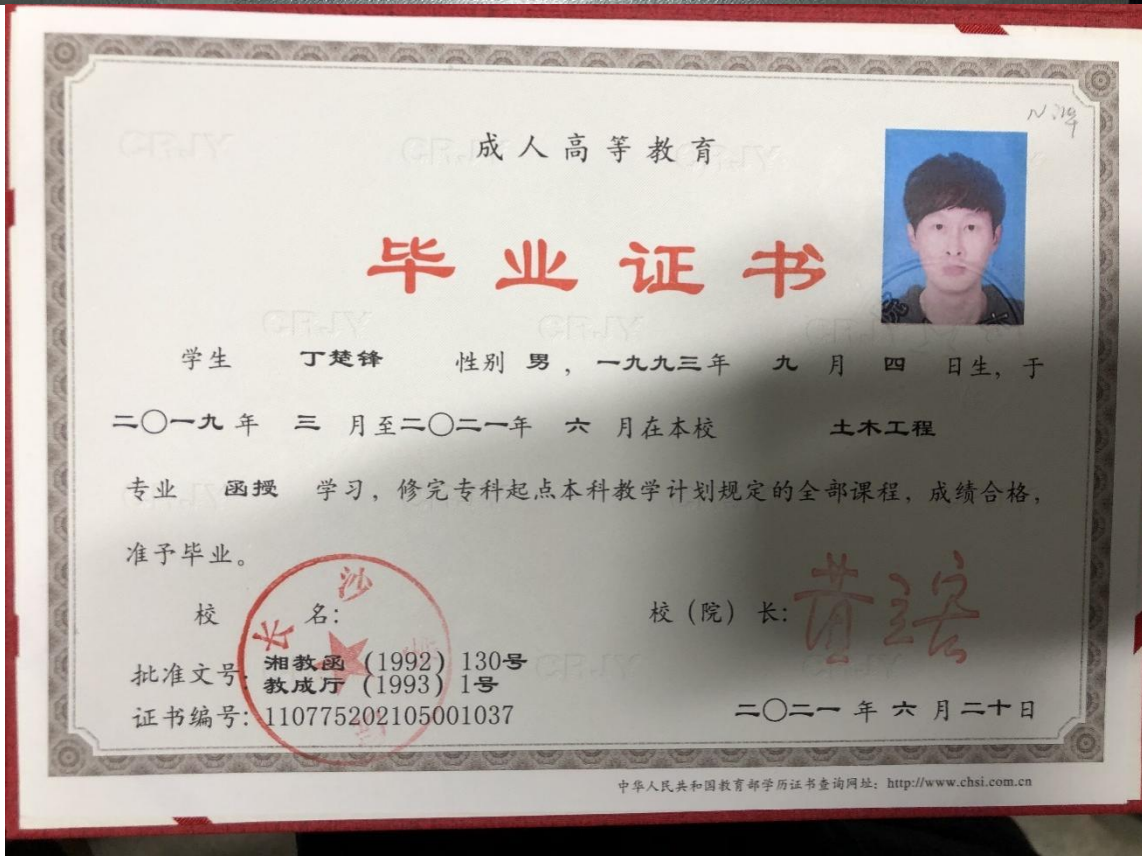 成人高等教育
毕业证书
学生 丁楚锋 性别 男，一九九三年 九 月 四 日生，于
二〇一九年 三 月至二〇二一年 六 月在本校 土木工程
专业 函授 学习，修完专科起点本科教学计划规定的全部课程，成绩合格，
准予毕业。
校 名： 校（院）长：
长沙
批准文号：湘教函（1992）130号
教成厅（1993）1号
证书编号：110775202105001037 二〇二一年六月二十日
中华人民共和国教育部学历证书查询网址：http://www.chsi.com.cn